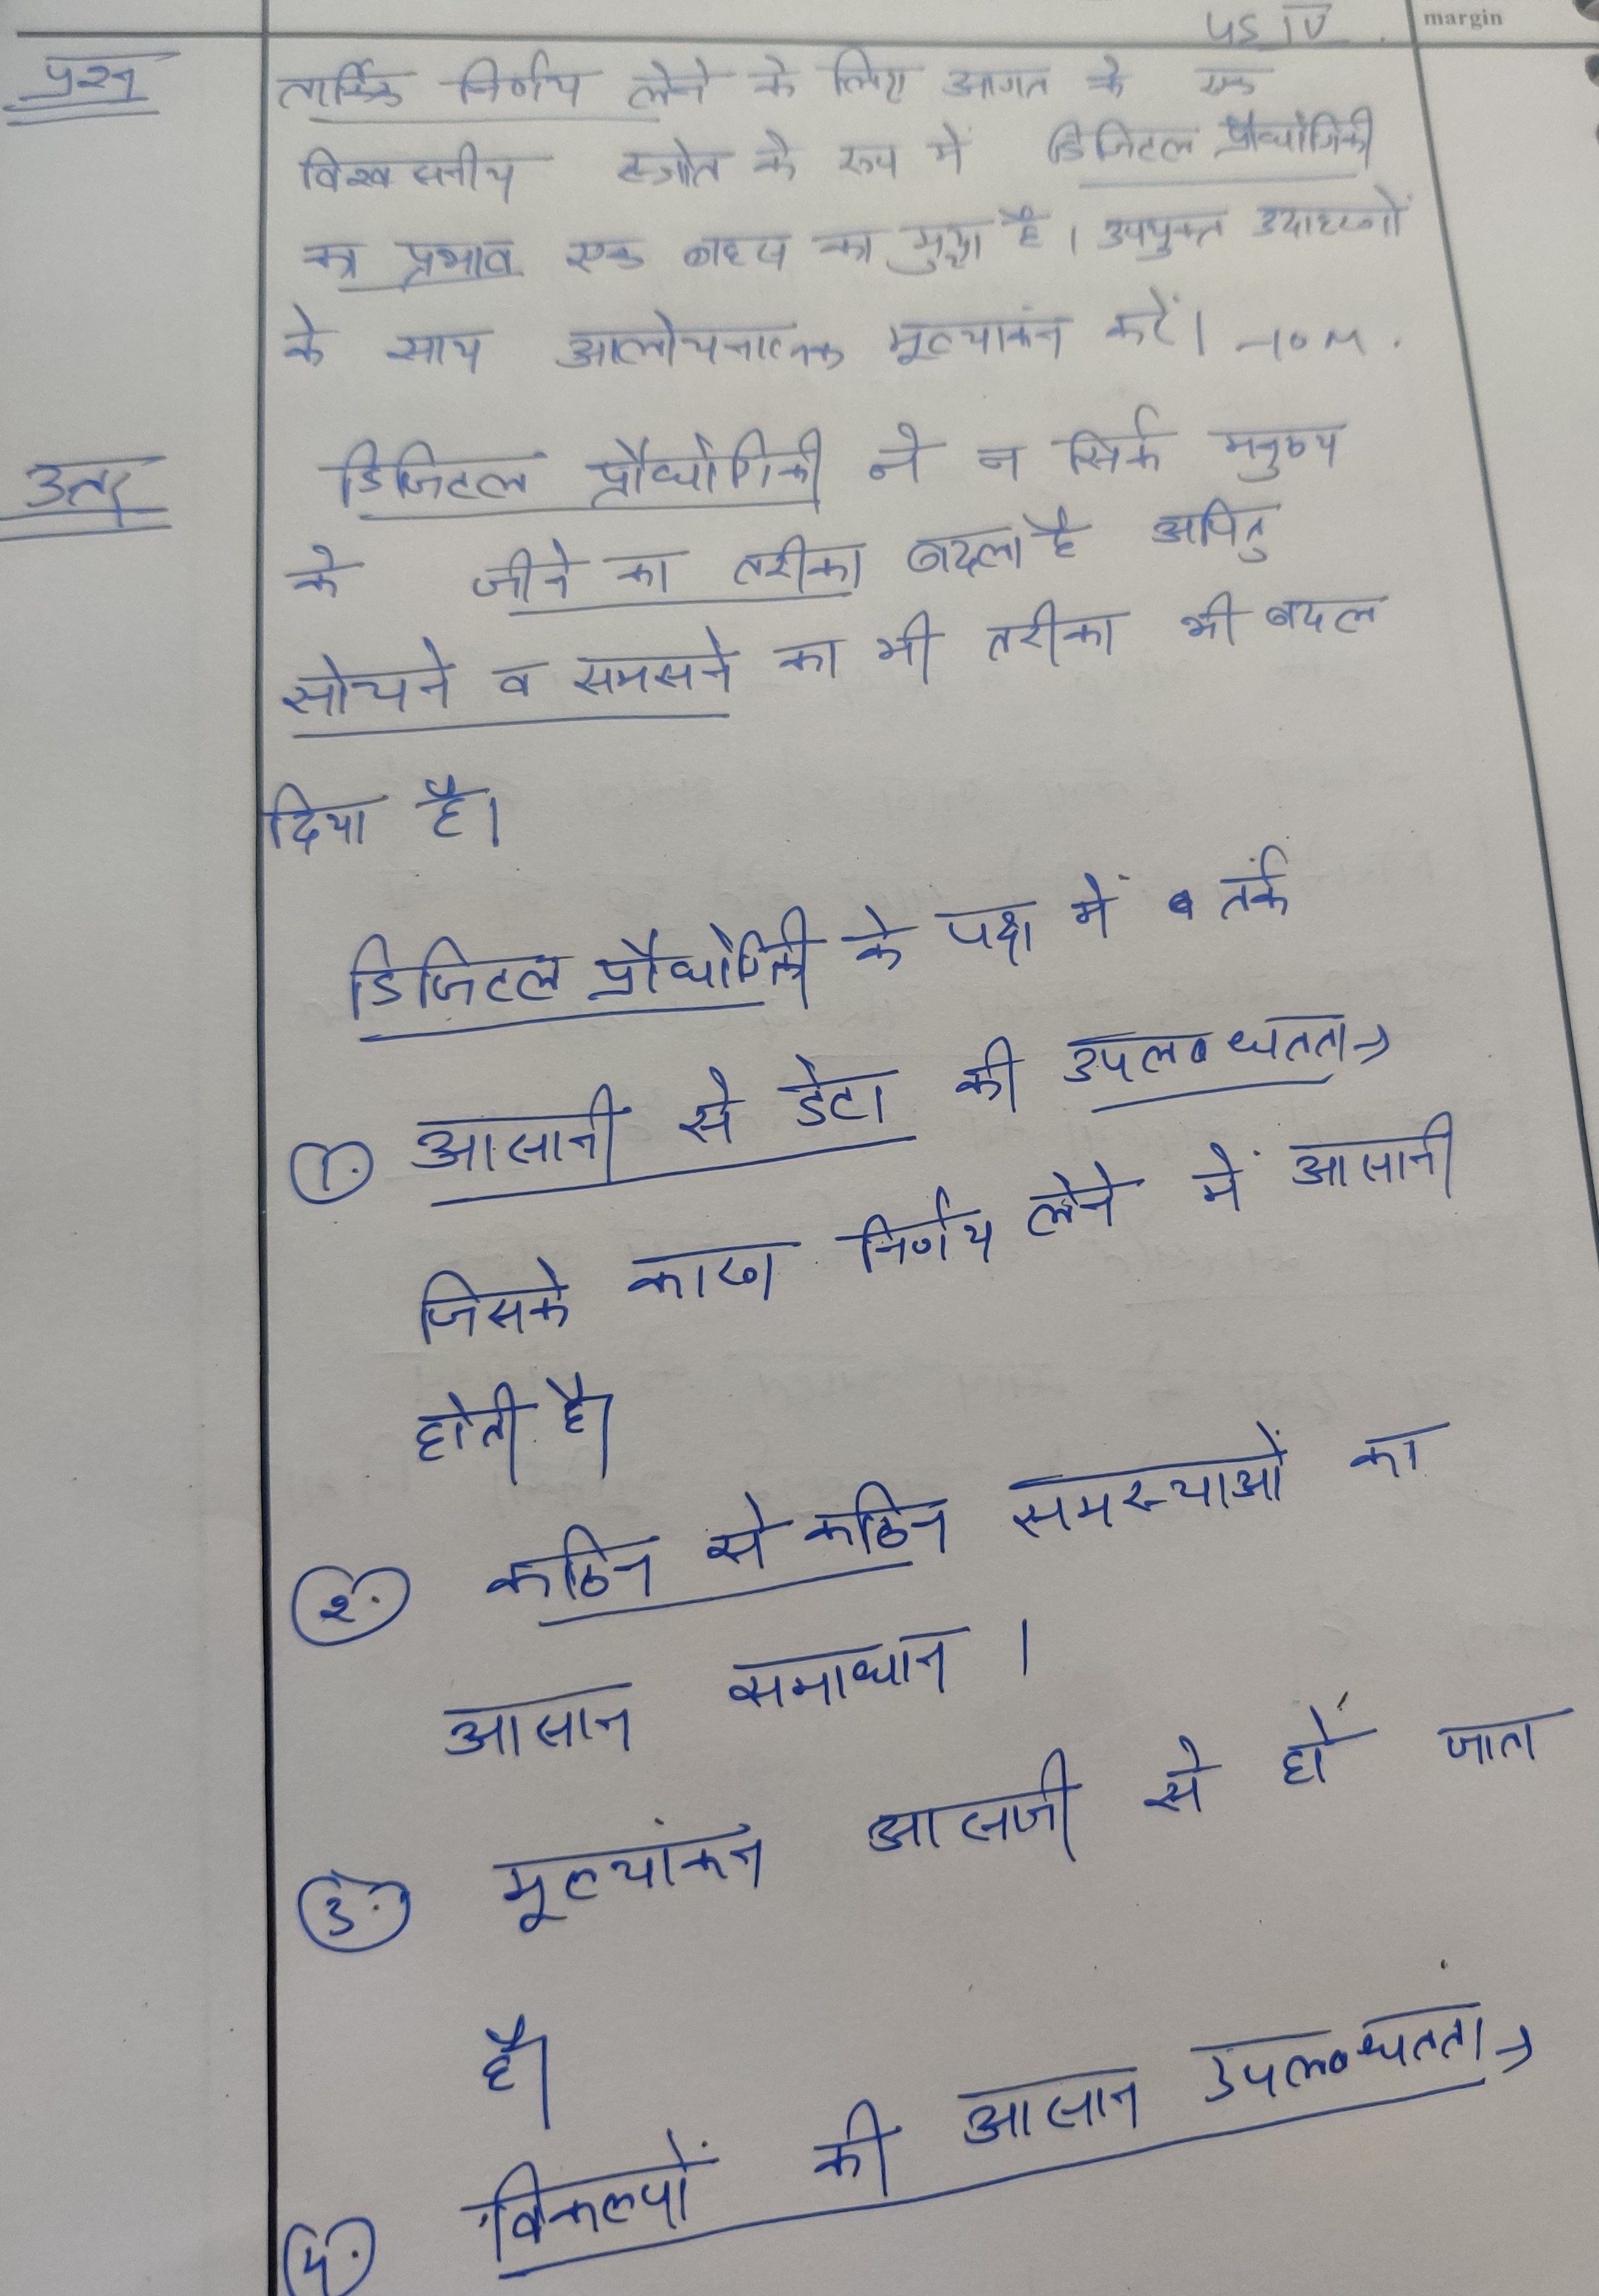 GS IV
margin
प्रश्न
तार्किक निर्णय लेने के लिए आगत के एक
विश्वसनीय स्त्रोत के रूप में डिजिटल प्रौद्योगिकी
का प्रभाव एक बहस का मुद्दा है। उपयुक्त उदाहरणों
के साथ आलोचनात्मक मूल्याकंन करें। -10 M.
उत्तर
डिजिटल प्रौद्योगिकी ने न सिर्फ मनुष्य
के जीने का तरीका बदला है अपितु
सोचने व समझने का भी तरीका भी बदल
दिया है।
डिजिटल प्रौद्योगिकी के पक्ष में तर्क
1. आसानी से डेटा की उपलब्धतता→
जिसके कारण निर्णय लेने में आसानी
होती है।
2. कठिन से कठिन समस्याओं का
आसान समाधान।
3. मूल्यांकन आसानी से हो जाता
है।
4. विकल्पों की आसान उपलब्धतता→